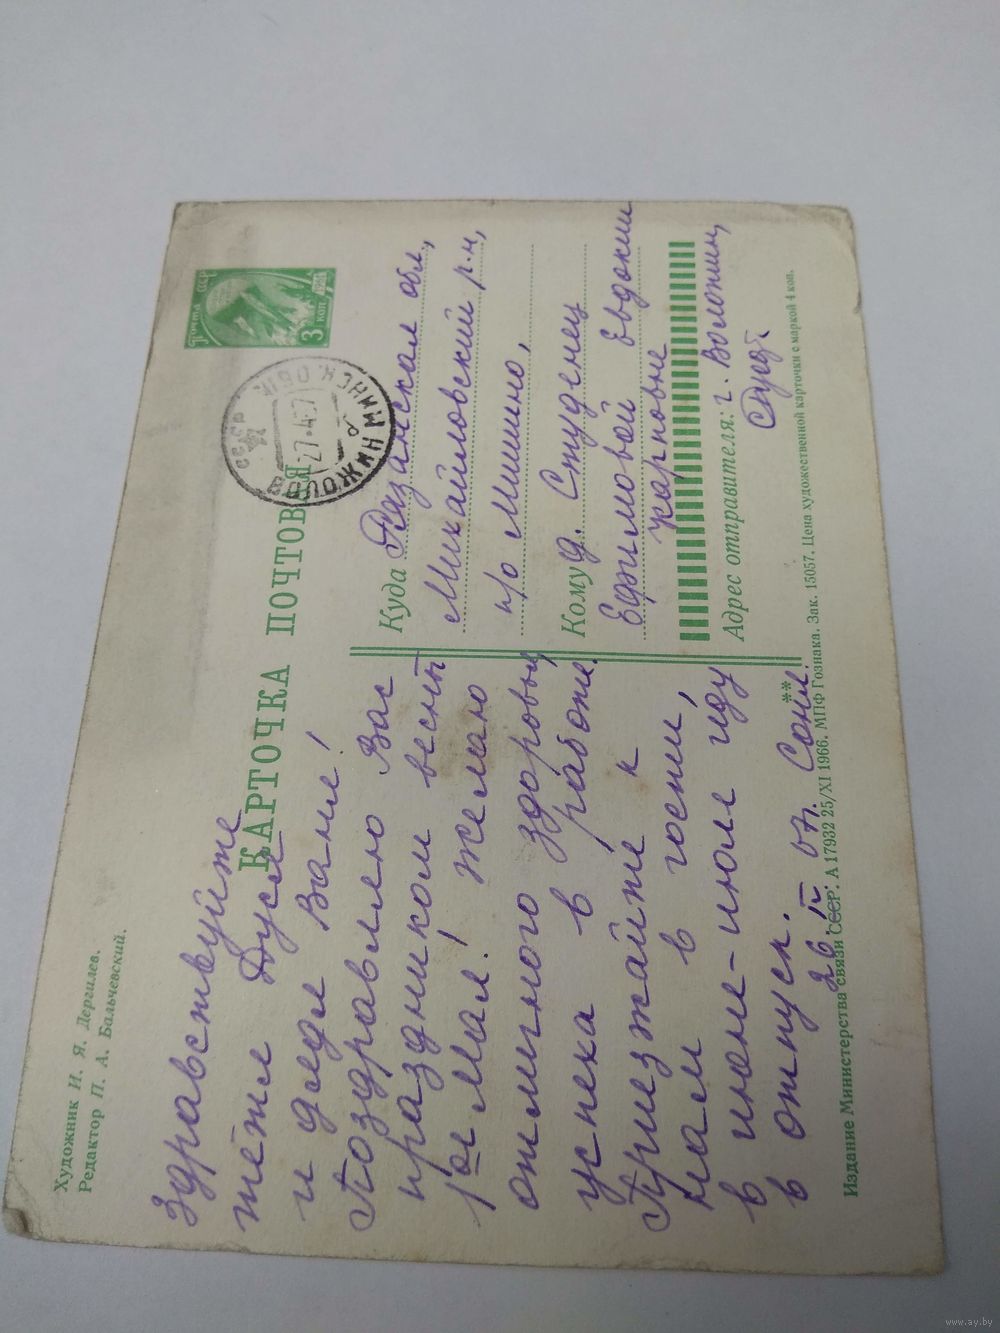 Художник И. Я. Дергилев.
Редактор П. А. Бальчевский.
КАРТОЧКА ПОЧТОВАЯ
ПОЧТА СССР
3 коп
СССР
ВОЛОЖИН МИНСК. ОБЛ.
27-4-67
Здравствуйте
тётя Дуся
и дядя Ваня!
Поздравляю Вас
праздником весны
1ое Мая! Желаю
отличного здоровья,
успеха в работе.
Приезжайте к
нам в гости,
в июне-июле иду
в отпуск.
26. IV 67г. Соня.
Куда Рязанская обл.,
Михайловский р-н,
п/о Мишино,
Кому д. Студенец
Ефимовой Евдокии
Карповне
Адрес отправителя: г. Воложин,
Издание Министерства связи СССР. А 17932 25/XI 1966. МПФ Гознака. Зак. 15057. Цена художественной карточки с маркой 4 коп.
**
www.ay.by